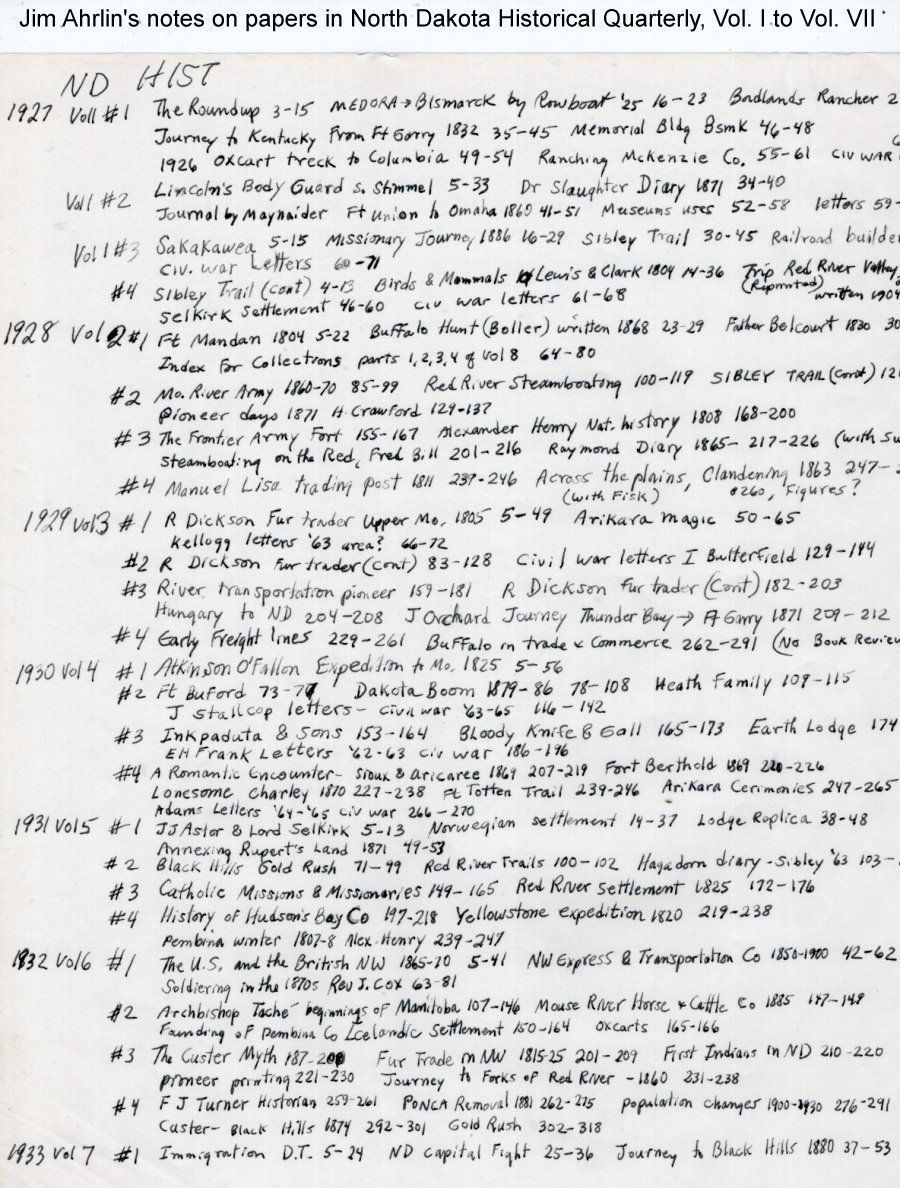 Jim Ahrlin's notes on papers in North Dakota Historical Quarterly, Vol. I to Vol. VII
ND HIST
1927 Vol1 #1 The Roundup 3-15 MEDORA→Bismarck by Rowboat '25 16-23 Badlands Rancher 2
Journey to Kentucky From Ft Garry 1832 35-45 Memorial Bldg Bsmk 46-48
1926 oxcart treck to Columbia 49-54 Ranching McKenzie Co. 55-61 CIV WAR 6
Vol1 #2 Lincoln's Body Guard S. Stimmel 5-33 Dr Slaughter Diary 1871 34-40
Journal by Maynaider Ft Union to Omaha 1860 41-51 Museums uses 52-58 letters 59-
Vol 1 #3 Sakakawea 5-15 Missionary Journey 1886 16-29 Sibley Trail 30-45 Railroad builde
Civ. war Letters 60-71
#4 Sibley Trail (cont) 4-13 Birds & Mammals Lewis & Clark 1804 14-36 Trip Red River Valley,
Selkirk Settlement 46-60 civ war letters 61-68 (Reprinted) written 1904
1928 Vol 2 #1 Ft Mandan 1804 5-22 Buffalo Hunt (Boller) written 1868 23-29 Father Belcourt 1830 30
Index For Collections parts 1,2,3,4 of vol 8 64-80
#2 Mo. River Army 1860-70 85-99 Red River Steamboating 100-119 SIBLEY TRAIL (cont) 12
Pioneer days 1871 H. Crawford 129-137
#3 The Frontier Army Fort 155-167 Alexander Henry Nat. history 1808 168-200
Steamboating on the Red, Fred Bill 201-216 Raymond Diary 1865- 217-226 (with Su
#4 Manuel Lisa trading post 1811 237-246 Across the plains, Clandening 1863 247-
(with Fisk) 260, Figures?
1929 vol3 #1 R Dickson Fur trader Upper Mo. 1805 5-49 Arikara magic 50-65
Kellogg letters '63 area? 66-72
#2 R Dickson Fur trader (cont) 83-128 Civil war letters I Butterfield 129-144
#3 River transportation pioneer 159-181 R Dickson Fur trader (Cont) 182-203
Hungary to ND 204-208 J Orchard Journey Thunder Bay→ Ft Garry 1871 209-212
#4 Early Freight lines 229-261 Buffalo in trade & Commerce 262-291 (No Book Review
1930 Vol 4 #1 Atkinson O'Fallon Expedition to Mo. 1825 5-56
#2 Ft Buford 73-77 Dakota Boom 1879-86 78-108 Heath Family 109-115
J Stallcop letters- civil war '63-65 116-142
#3 Inkpaduta & Sons 153-164 Bloody Knife & Gall 165-173 Earth Lodge 174
EH Frank Letters '62-63 civ war 186-196
#4 A Romantic Encounter- Sioux & Aricaree 1869 207-219 Fort Berthold 1869 220-226
Lonesome Charley 1870 227-238 Ft Totten Trail 239-246 Arikara Cerimonies 247-265
Adams Letters '64-'65 civ war 266-270
1931 Vol 5 #1 JJ Astor & Lord Selkirk 5-13 Norwegian settlement 14-37 Lodge Replica 38-48
Annexing Rupert's Land 1871 49-53
#2 Black Hills Gold Rush 71-99 Red River Trails 100-102 Hagadorn diary - Sibley '63 103-
#3 Catholic Missions & Missionaries 149-165 Red River Settlement 1825 172-176
#4 History of Hudson's Bay Co 197-218 Yellowstone expedition 1820 219-238
Pembina winter 1807-8 Alex. Henry 239-247
1832 Vol6 #1 The U.S. and the British NW 1865-70 5-41 NW Express & Transportation Co 1850-1900 42-62
Soldiering in the 1870s Rev J. Cox 63-81
#2 Archbishop Taché beginnings of Manitoba 107-146 Mouse River Horse & Cattle Co 1885 147-149
Founding of Pembina Co Icelandic Settlement 150-164 oxcarts 165-166
#3 The Custer Myth 187-200 Fur Trade in NW 1815-25 201-209 First Indians in ND 210-220
pioneer printing 221-230 Journey to Forks of Red River - 1860 231-238
#4 F J Turner Historian 259-261 PONCA Removal 1881 262-275 population changes 1900-1930 276-291
Custer- Black Hills 1874 292-301 Gold Rush 302-318
1933 Vol 7 #1 Immigration D.T. 5-24 ND Capital Fight 25-36 Journey to Black Hills 1880 37-53